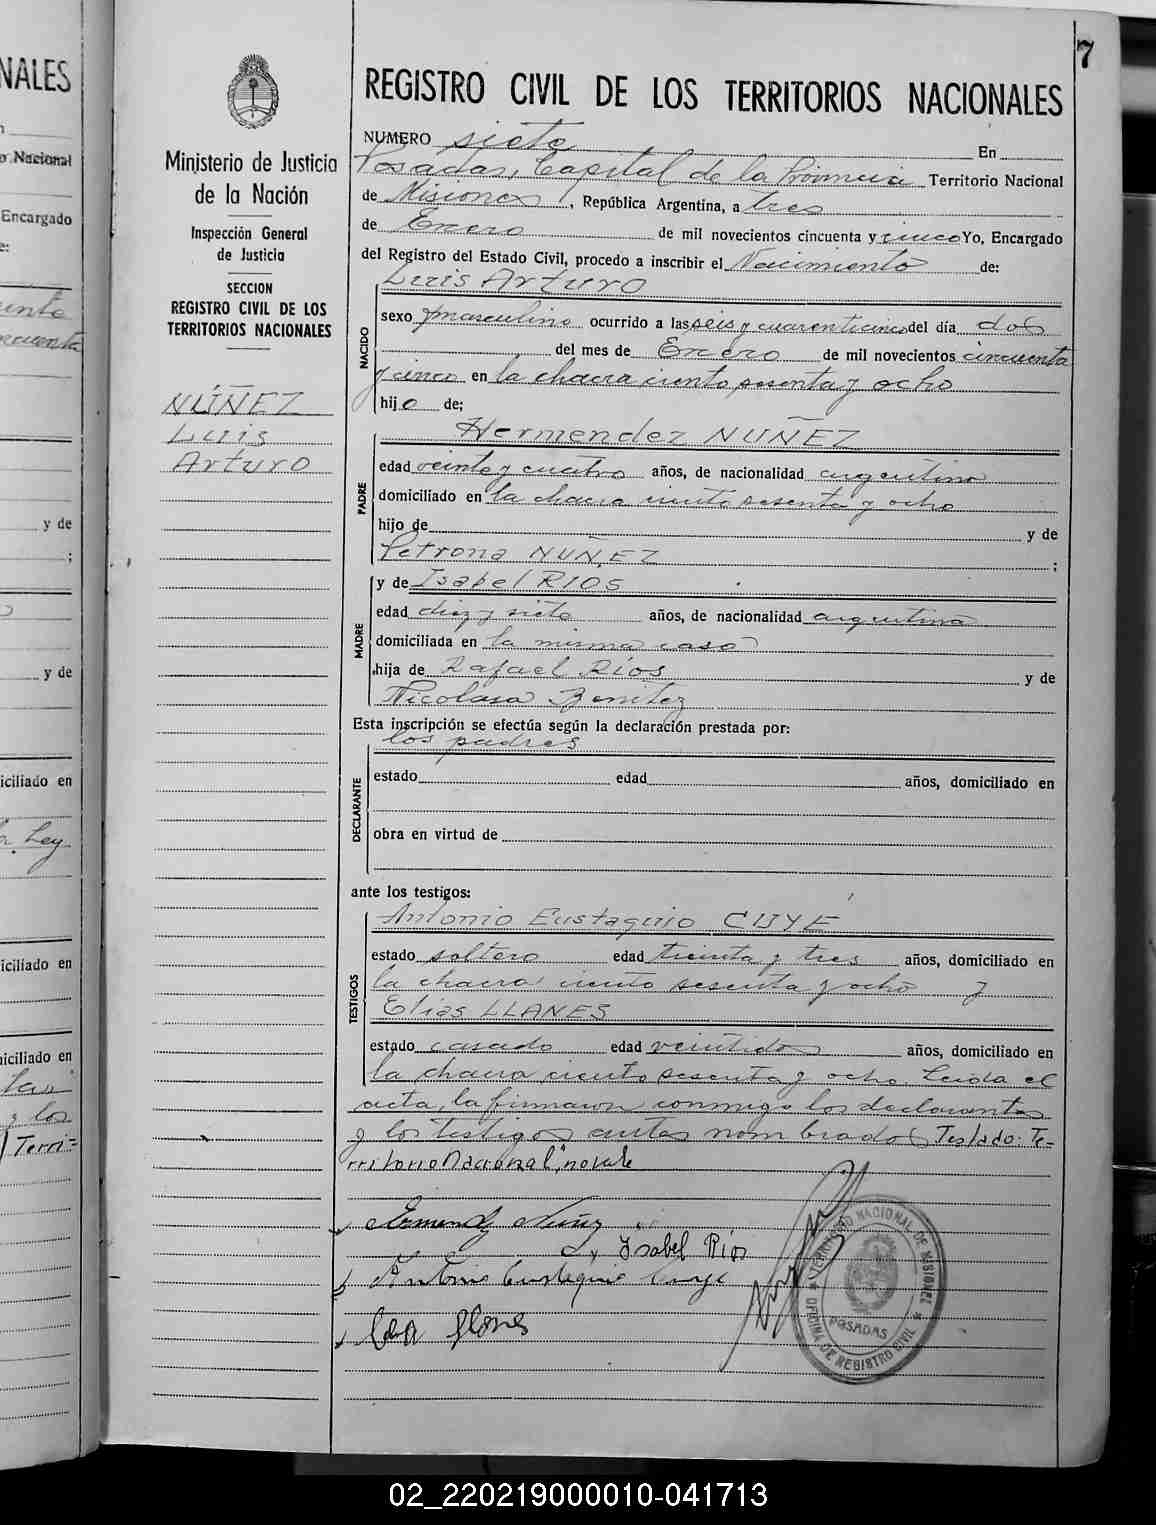 NALES
Nacional
Encargado
y de
;
y de
iciliado en
Ley
iciliado en
iciliado en
y los
Terri=
7
Ministerio de Justicia
de la Nación
Inspección General
de Justicia
SECCION
REGISTRO CIVIL DE LOS
TERRITORIOS NACIONALES
NÚÑEZ
Luis
Arturo
REGISTRO CIVIL DE LOS TERRITORIOS NACIONALES
NUMERO siete En
Posadas, Capital de la Provincia Territorio Nacional
de Misiones, República Argentina, a tres
de Enero de mil novecientos cincuenta y cinco Yo, Encargado
del Registro del Estado Civil, procedo a inscribir el Nacimiento de:
NACIDO
Luis Arturo
sexo masculino ocurrido a las seis y cuarenticinco del día dos
del mes de Enero de mil novecientos cincuenta
y cinco en la chacra ciento sesenta y ocho
hijo de;
PADRE
Hermendez NUÑEZ
edad veinte y cuatro años, de nacionalidad argentino
domiciliado en la chacra ciento sesenta y ocho
hijo de y de
Petrona NUÑEZ ;
MADRE
y de Isabel RIOS
edad diez y siete años, de nacionalidad argentina
domiciliada en la misma casa
hija de Rafael Ríos y de
Nicolasa Benitez
Esta inscripción se efectúa según la declaración prestada por:
DECLARANTE
los padres
estado edad años, domiciliado en
obra en virtud de
ante los testigos:
TESTIGOS
Antonio Eustaquio CUYÉ
estado soltero edad treinta y tres años, domiciliado en
la chacra ciento sesenta y ocho y
Elías LLANES
estado casado edad veintidos años, domiciliado en
la chacra ciento sesenta y ocho. Leida el
acta, la firmaron conmigo los declarantes
y los testigos antes nombrados Testado: Te-
rritorio Nacional", no vale
Nuñez
Ysabel Ríos
Antonio Eustaquio Cuye
TERRITORIO NACIONAL DE MISIONES
POSADAS
OFICINA DE REGISTRO CIVIL
02_220219000010-041713